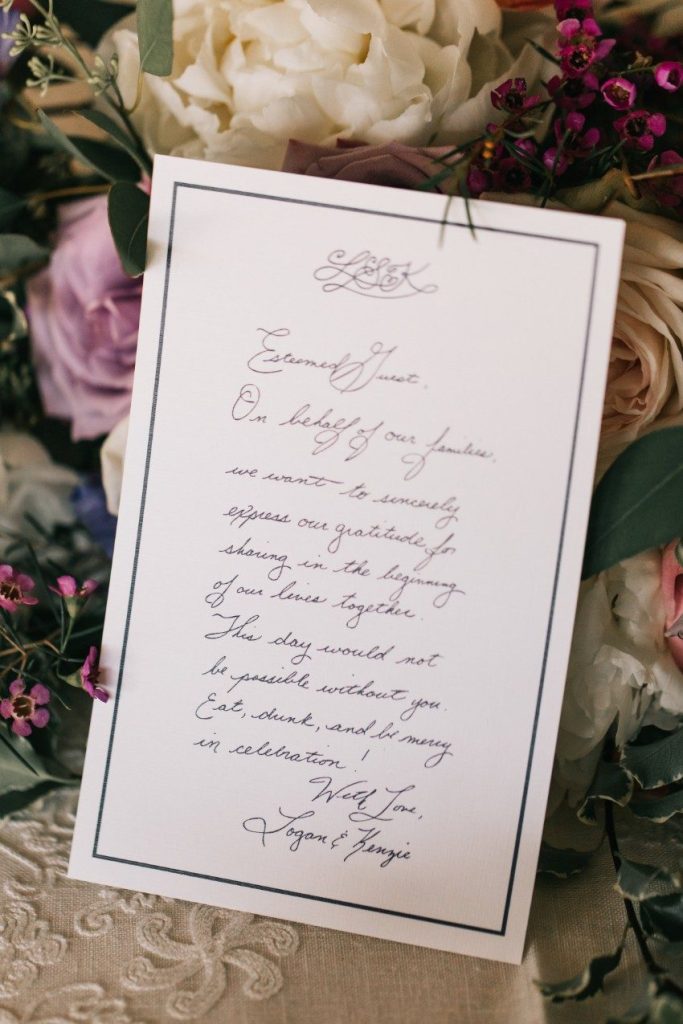 L & K
Esteemed Guest,
On behalf of our families,
we want to sincerely
express our gratitude for
sharing in the beginning
of our lives together.
This day would not
be possible without you.
Eat, drink, and be merry
in celebration!
With Love,
Logan & Kenzie